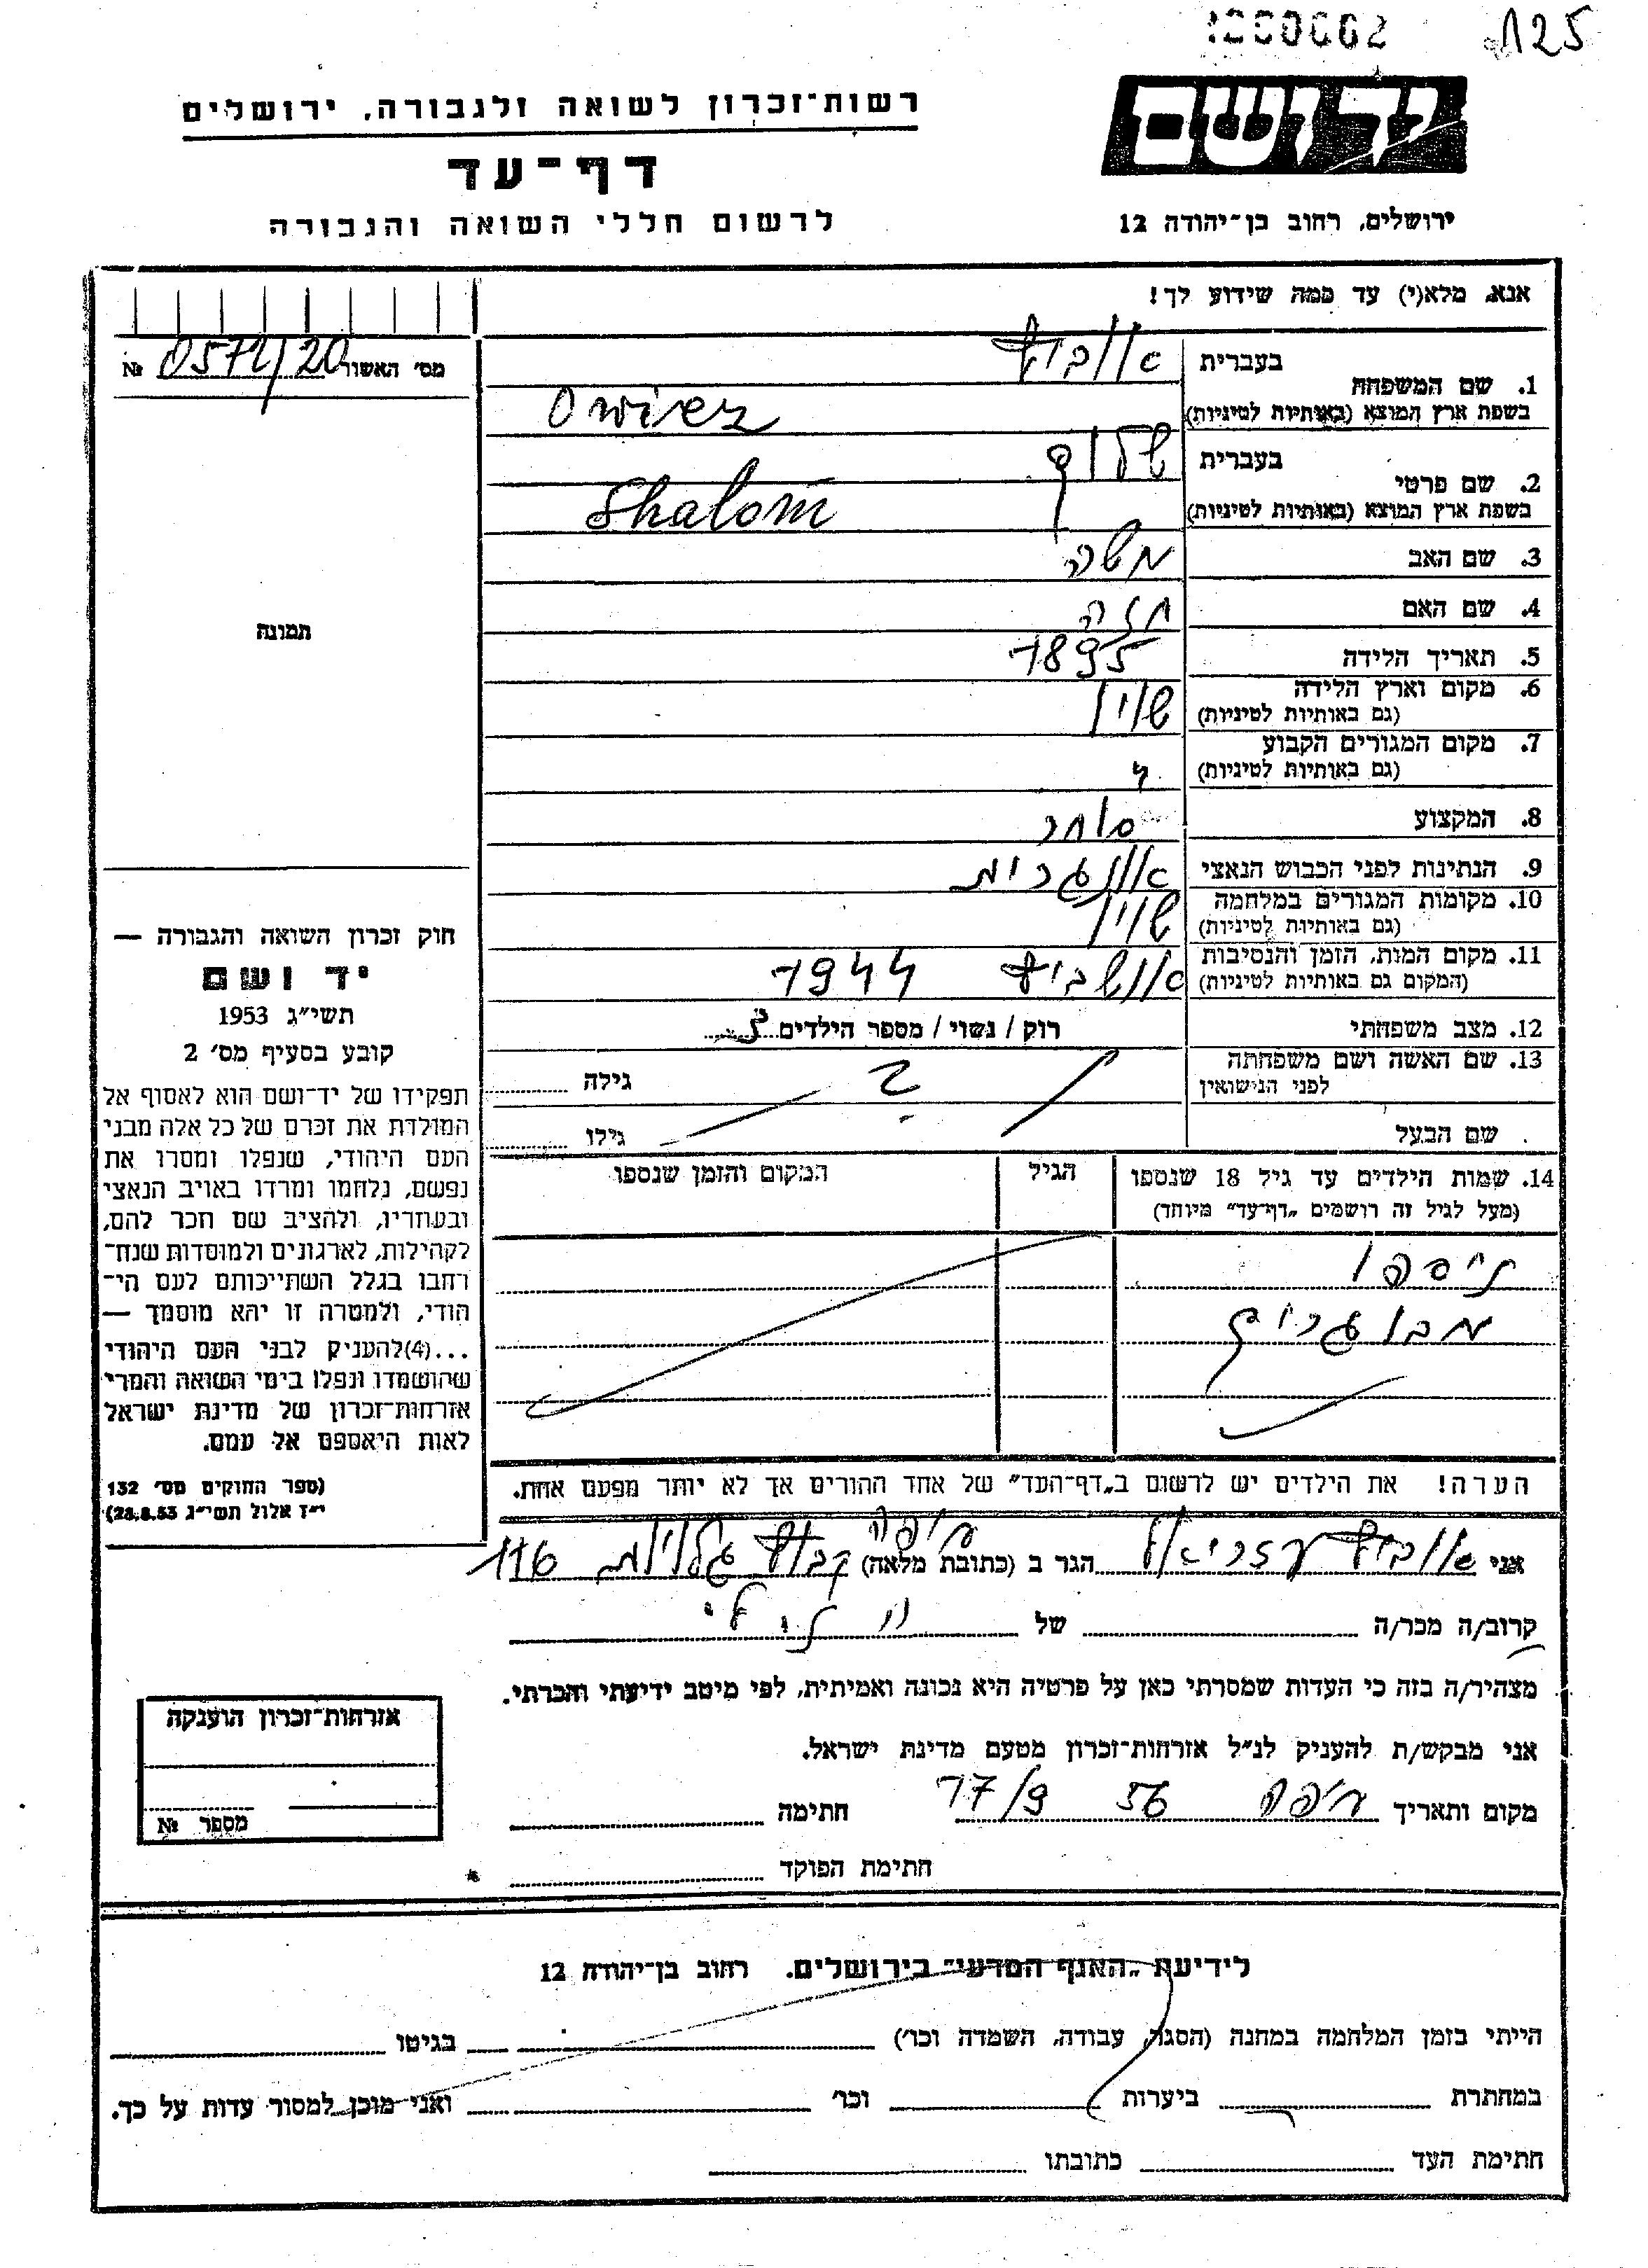 125
רשות־זכרון לשואה ולגבורה, ירושלים
יד ושם
דף־עד
לרשום חללי השואה והגבורה
ירושלים, רחוב בן־יהודה 12
אנא, מלא(י) עד כמה שידוע לך!
מס' האשור № 0572/20
1. שם המשפחה
בעברית
בשפת ארץ המוצא (באותיות לטיניות)
2. שם פרטי
בעברית שלום
בשפת ארץ המוצא (באותיות לטיניות) Shalom
3. שם האב משה
4. שם האם
5. תאריך הלידה 1895
6. מקום וארץ הלידה
(גם באותיות לטיניות)
7. מקום המגורים הקבוע
(גם באותיות לטיניות) "
8. המקצוע סוחר
9. הנתינות לפני הכבוש הנאצי אונגרית
10. מקומות המגורים במלחמה
(גם באותיות לטיניות)
11. מקום המות, הזמן והנסיבות
(המקום גם באותיות לטיניות) אושביץ 1944
12. מצב משפחתי רוק / נשוי / מספר הילדים
13. שם האשה ושם משפחתה
לפני הנישואין ? גילה
שם הבעל גילו
14. שמות הילדים עד גיל 18 שנספו
(מעל לגיל זה רושמים „דף־עד" מיוחד)
הגיל
המקום והזמן שנספו
ניספו
מבוגרים
הערה! את הילדים יש לרשום ב„דף־העד" של אחד ההורים אך לא יותר מפעם אחת.
תמונה
חוק זכרון השואה והגבורה —
יד ושם
תשי״ג 1953
קובע בסעיף מס' 2
תפקידו של יד־ושם הוא לאסוף אל
המולדת את זכרם של כל אלה מבני
העם היהודי, שנפלו ומסרו את
נפשם, נלחמו ומרדו באויב הנאצי
ובעוזריו, ולהציב שם וזכר להם,
לקהילות, לארגונים ולמוסדות שנח־
רבו בגלל השתייכותם לעם הי־
הודי, ולמטרה זו יהא מוסמך —
...(4)להעניק לבני העם היהודי
שהושמדו ונפלו בימי השואה והמרי
אזרחות־זכרון של מדינת ישראל
לאות היאספם אל עמם.
(ספר החוקים מס' 132
י״ז אלול תשי״ג 28.8.53)
אני עזריאל הגר ב (כתובת מלאה) חיפה קבוץ גלויות 116
קרוב/ה מכר/ה של
מצהיר/ה בזה כי העדות שמסרתי כאן על פרטיה היא נכונה ואמיתית, לפי מיטב ידיעתי והכרתי.
אני מבקש/ת להעניק לנ״ל אזרחות־זכרון מטעם מדינת ישראל.
מקום ותאריך חיפה 56 17/9 חתימה
חתימת הפוקד
אזרחות־זכרון הוענקה
מספר №
לידיעת „האגף המדעי" בירושלים, רחוב בן־יהודה 12
הייתי בזמן המלחמה במחנה (הסגר, עבודה, השמדה וכו') בגיטו
במחתרת ביערות וכו' ואני מוכן למסור עדות על כך.
חתימת העד כתובתו